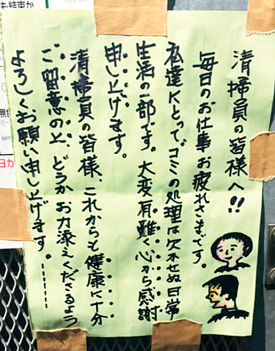 清掃員の皆様へ!!
毎日のお仕事お疲れさまです。
私達にとってゴミの処理は欠かせぬ日常
生活の一部です。大変有難く心から感謝
申し上げます。
清掃員の皆様、これからも健康に十分
ご留意の上、どうかお力添えくださるよう
よろしくお願い申し上げます。